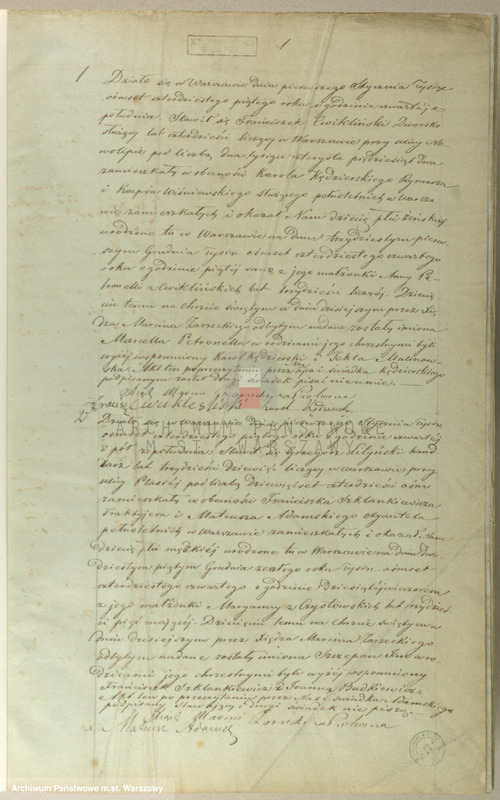 1
1
Działo się w Warszawie dnia pierwszego Stycznia Tysiąc
ośmset czterdziestego piątego roku o godzinie czwartéj z
południa. Stawił się Franciszek Cwikliński Dworsko
służący lat czterdzieści liczący w Warszawie przy ulicy No-
wolipie pod liczbą dwa tysiące czterysta pięćdziesiąt dwa
zamieszkały w obecności Karola Kędzierskiego Rymarza
i Kacpra Wiśniewskiego służącego pełnoletnich w Warsza-
wie zamieszkałych i okazał Nam dziecię płci żeńskiéj
urodzone tu w Warszawie na dniu trzydziestym pierw-
szym Grudnia Tysiąc ośmset czterdziestego czwartego
roku o godzinie piątéj rano z jego małżonki Anny Pe-
tronelli z Cwiklińskich lat trzydzieści liczącéj. Dziecię-
ciu temu na chrzcie świętym w dniu dzisiejszym przez Xię-
dza Marcina Zarzeckiego odbytym nadane zostały imiona
Maryella Petronella a rodzicami jego chrzestnymi byli
wyżéj wspomniony Karol Kędzierski i Tekla Malinow-
ska Akt ten po przeczytaniu przez Nas, Ojca i świadka Kędzierskiego
podpisanym został drugi świadek pisać nieumie.
Xiądz Marcin Zarzecki za Proboszcza
Franciszek Cwikliński Karol Kędzierski
2
Działo się w Warszawie dnia pierwszego Stycznia Tysiąc
ośmset czterdziestego piątego roku o godzinie czwartéj
i pół z południa. Stawił się Grzegorz Letyński hand-
larz lat trzydzieści dziewięć liczący w Warszawie przy
ulicy pod liczbą dziewięćset czterdzieści ośm
zamieszkały w obecności Franciszka Szklankiewicza
Traktyera i Mateusza Adamskiego obywatela
pełnoletnich w Warszawie zamieszkałych i okazał Nam
dziecię płci męzkiéj urodzone tu w Warszawie na dniu dwu-
dziestym piątym Grudnia zeszłego roku Tysiąc ośmset
czterdziestego czwartego o godzinie dziesiątéj wieczorem
z jego małżonki Maryanny z Czystowskich lat trzydzieś-
ci pięć mającéj. Dziecięciu temu na chrzcie świętym w
dniu dzisiejszym przez Xiędza Marcina Zarzeckiego
odbytym nadane zostały imiona Szczepan Jan a ro-
dzicami jego chrzestnymi byli wyżéj wspomniony
Franciszek Szklankiewicz i Joanna Budkiewicz
Akt ten po przeczytaniu przez Nas i świadka Adamskiego
podpisany Stawający i drugi świadek nie piszą.
Xiądz Marcin Zarzecki za Proboszcza
Mateusz Adamski
ARCHIWUM PAŃSTWOWE
M.ST. WARSZAWY
Archiwum Państwowe m.st. Warszawy